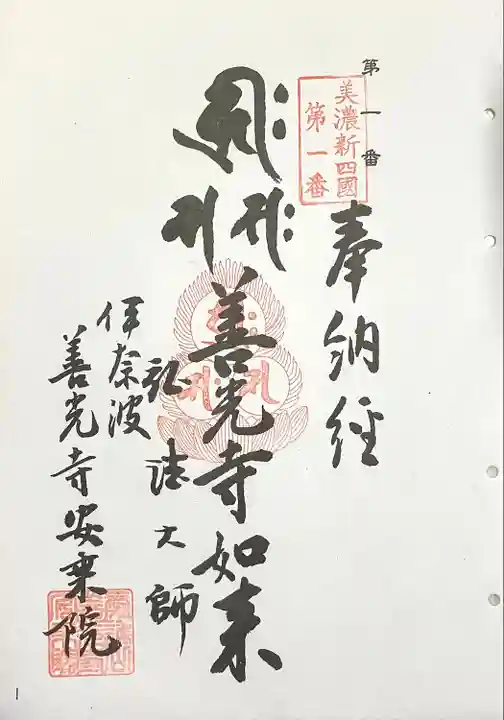 第一番
美濃新四國
第一番
奉納経
善光寺如来
弘法大師
伊奈波
善光寺安楽院
1